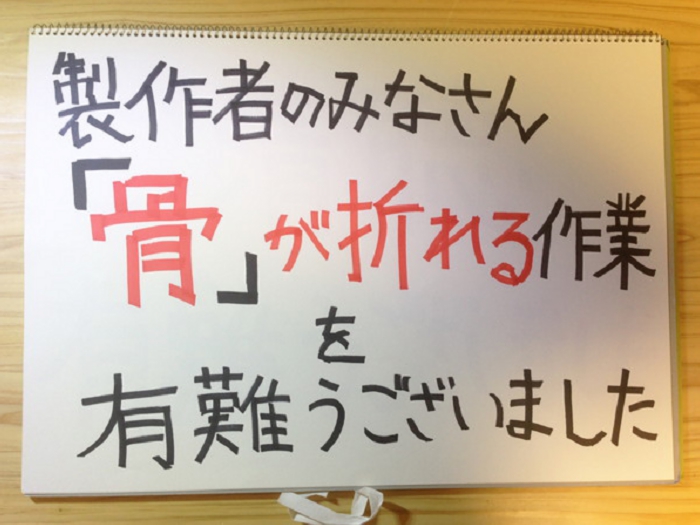 製作者のみなさん
「骨」が折れる作業
を
有難うございました